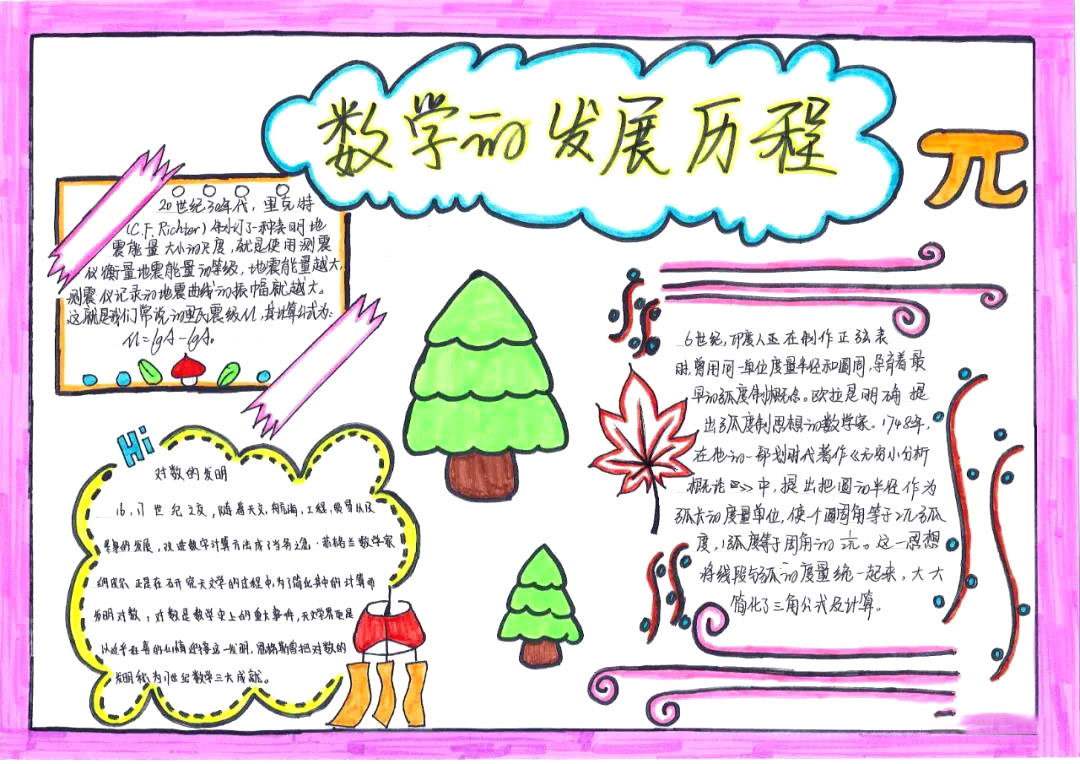 数学的发展历程
π
20世纪30年代，里克特
(C.F.Richter)制订了一种表明地
震能量大小的尺度，就是使用测震
仪衡量地震能量的等级，地震能量越大，
测震仪记录的地震曲线的振幅就越大。
这就是我们常说的里氏震级M，其计算公式为：
M=lgA-lgA₀
Hi
对数的发明
16、17世纪之交，随着天文，航海，工程，贸易以及
军事的发展，改进数字计算方法成了当务之急。苏格兰数学家
纳皮尔正是在研究天文学的过程中，为了简化其中的计算而
发明对数；对数是数学史上的重大事件，天文学界更是
以近乎狂喜的心情迎接这一发明，恩格斯曾把对数的
发明称为17世纪数学三大成就。
6世纪，印度人在制作正弦表
时，曾用同一单位度量半径和圆周，孕育着最
早的弧度制概念。欧拉是明确提
出弧度制思想的数学家。1748年，
在他的一部划时代著作《无穷小分析
概论》中，提出把圆的半径作为
弧长的度量单位，使一个圆周角等于2π弧
度，1弧度等于周角的1/2π。这一思想
将线段与弧的度量统一起来，大大
简化了三角公式及计算。